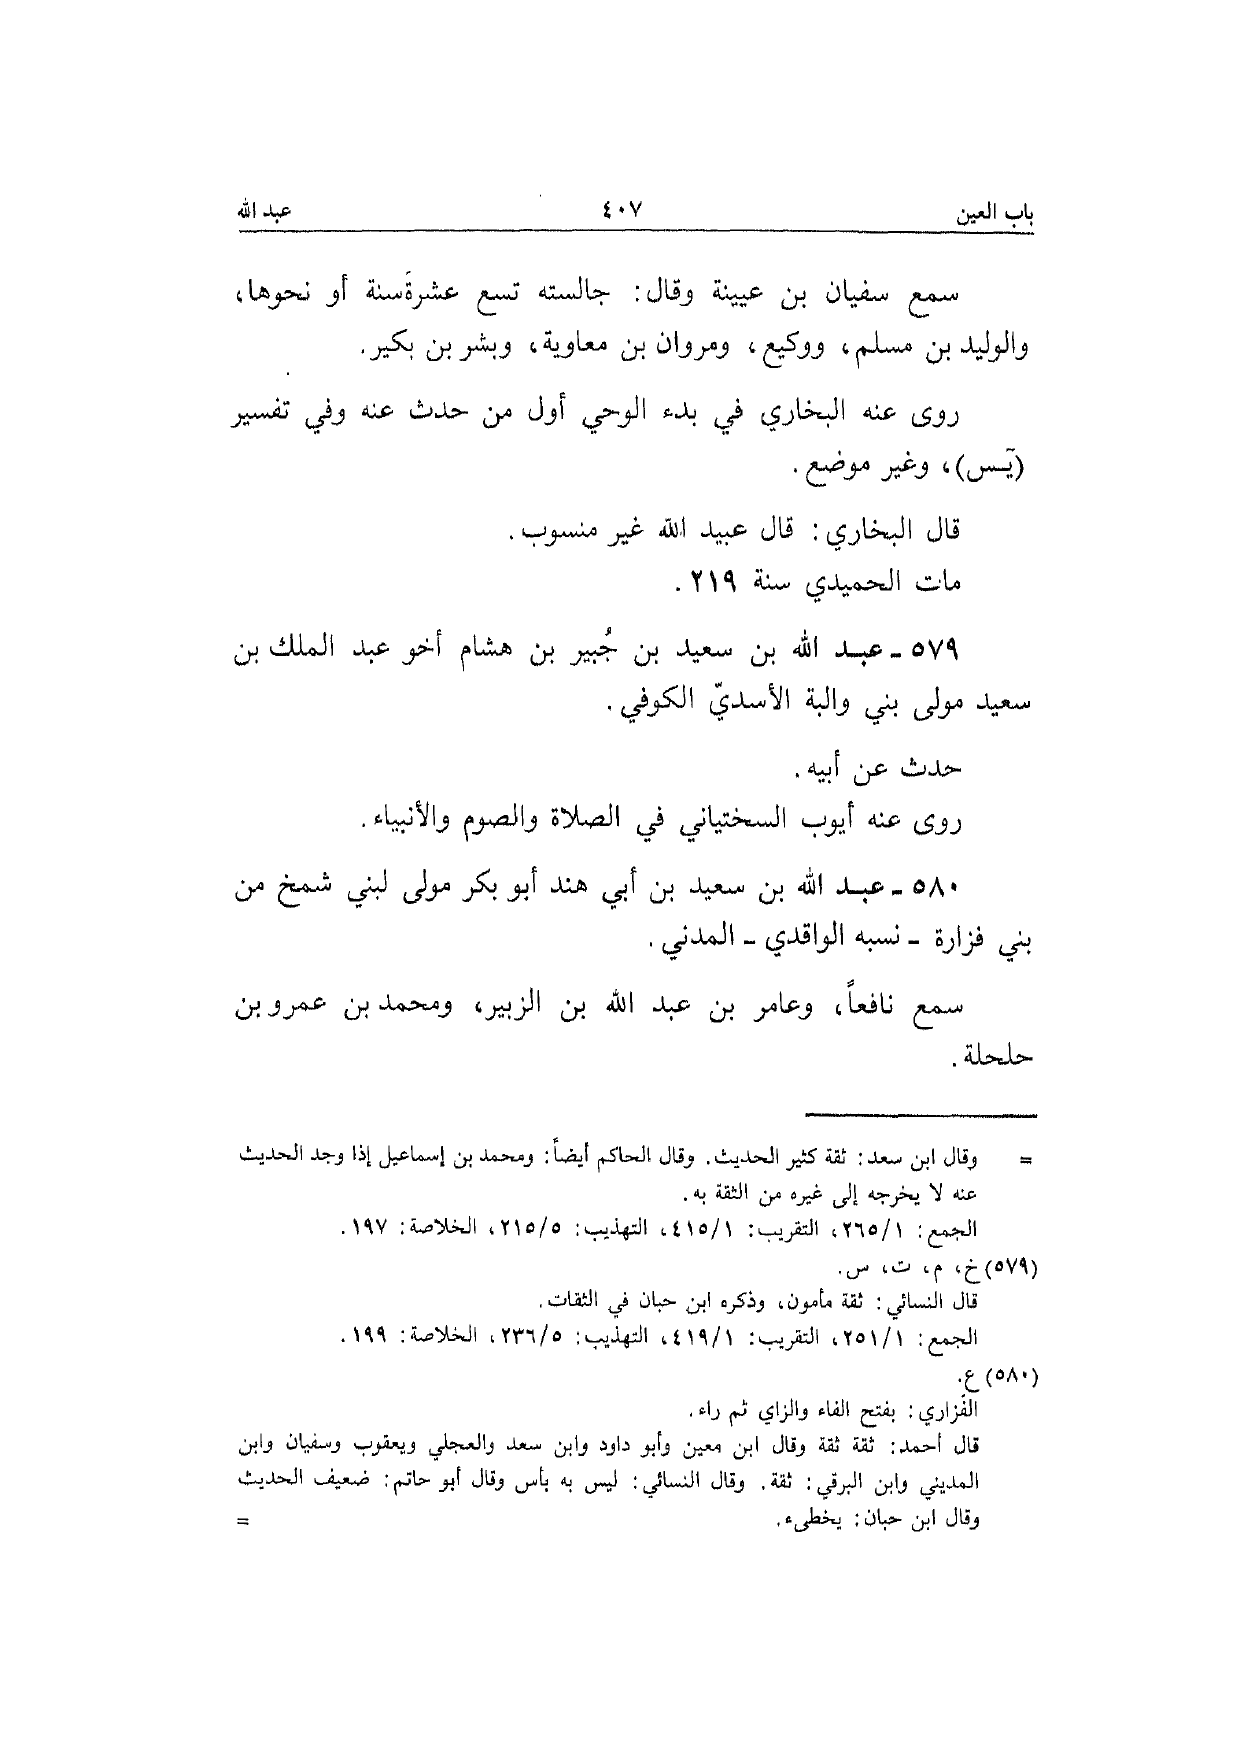 باب العين ٤٠٧ عبد الله
سمع سفيان بن عيينة وقال: جالسته تسع عشرةَ سنة أو نحوها،
والوليد بن مسلم، ووكيع، ومروان بن معاوية، وبشر بن بكير.
روى عنه البخاري في بدء الوحي أول من حدث عنه وفي تفسير
(يٓس)، وغير موضع.
قال البخاري: قال عبيد الله غير منسوب.
مات الحميدي سنة ٢١٩.
٥٧٩ ـ عبد الله بن سعيد بن جُبير بن هشام أخو عبد الملك بن
سعيد مولى بني والبة الأسديّ الكوفي.
حدث عن أبيه.
روى عنه أيوب السختياني في الصلاة والصوم والأنبياء.
٥٨٠ ـ عبد الله بن سعيد بن أبي هند أبو بكر مولى لبني شمخ من
بني فزارة ـ نسبه الواقدي ـ المدني.
سمع نافعاً، وعامر بن عبد الله بن الزبير، ومحمد بن عمرو بن
حلحلة.
= وقال ابن سعد: ثقة كثير الحديث. وقال الحاكم أيضاً: ومحمد بن إسماعيل إذا وجد الحديث
عنه لا يخرجه إلى غيره من الثقة به.
الجمع: ٢٦٥/١، التقريب: ٤١٥/١، التهذيب: ٢١٥/٥، الخلاصة: ١٩٧.
(٥٧٩) خ، م، ت، س.
قال النسائي: ثقة مأمون، وذكره ابن حبان في الثقات.
الجمع: ٢٥١/١، التقريب: ٤١٩/١، التهذيب: ٢٣٦/٥، الخلاصة: ١٩٩.
(٥٨٠) ع.
الفَزاري: بفتح الفاء والزاي ثم راء.
قال أحمد: ثقة ثقة وقال ابن معين وأبو داود وابن سعد والعجلي ويعقوب وسفيان وابن
المديني وابن البرقي: ثقة. وقال النسائي: ليس به بأس وقال أبو حاتم: ضعيف الحديث
وقال ابن حبان: يخطىء. =